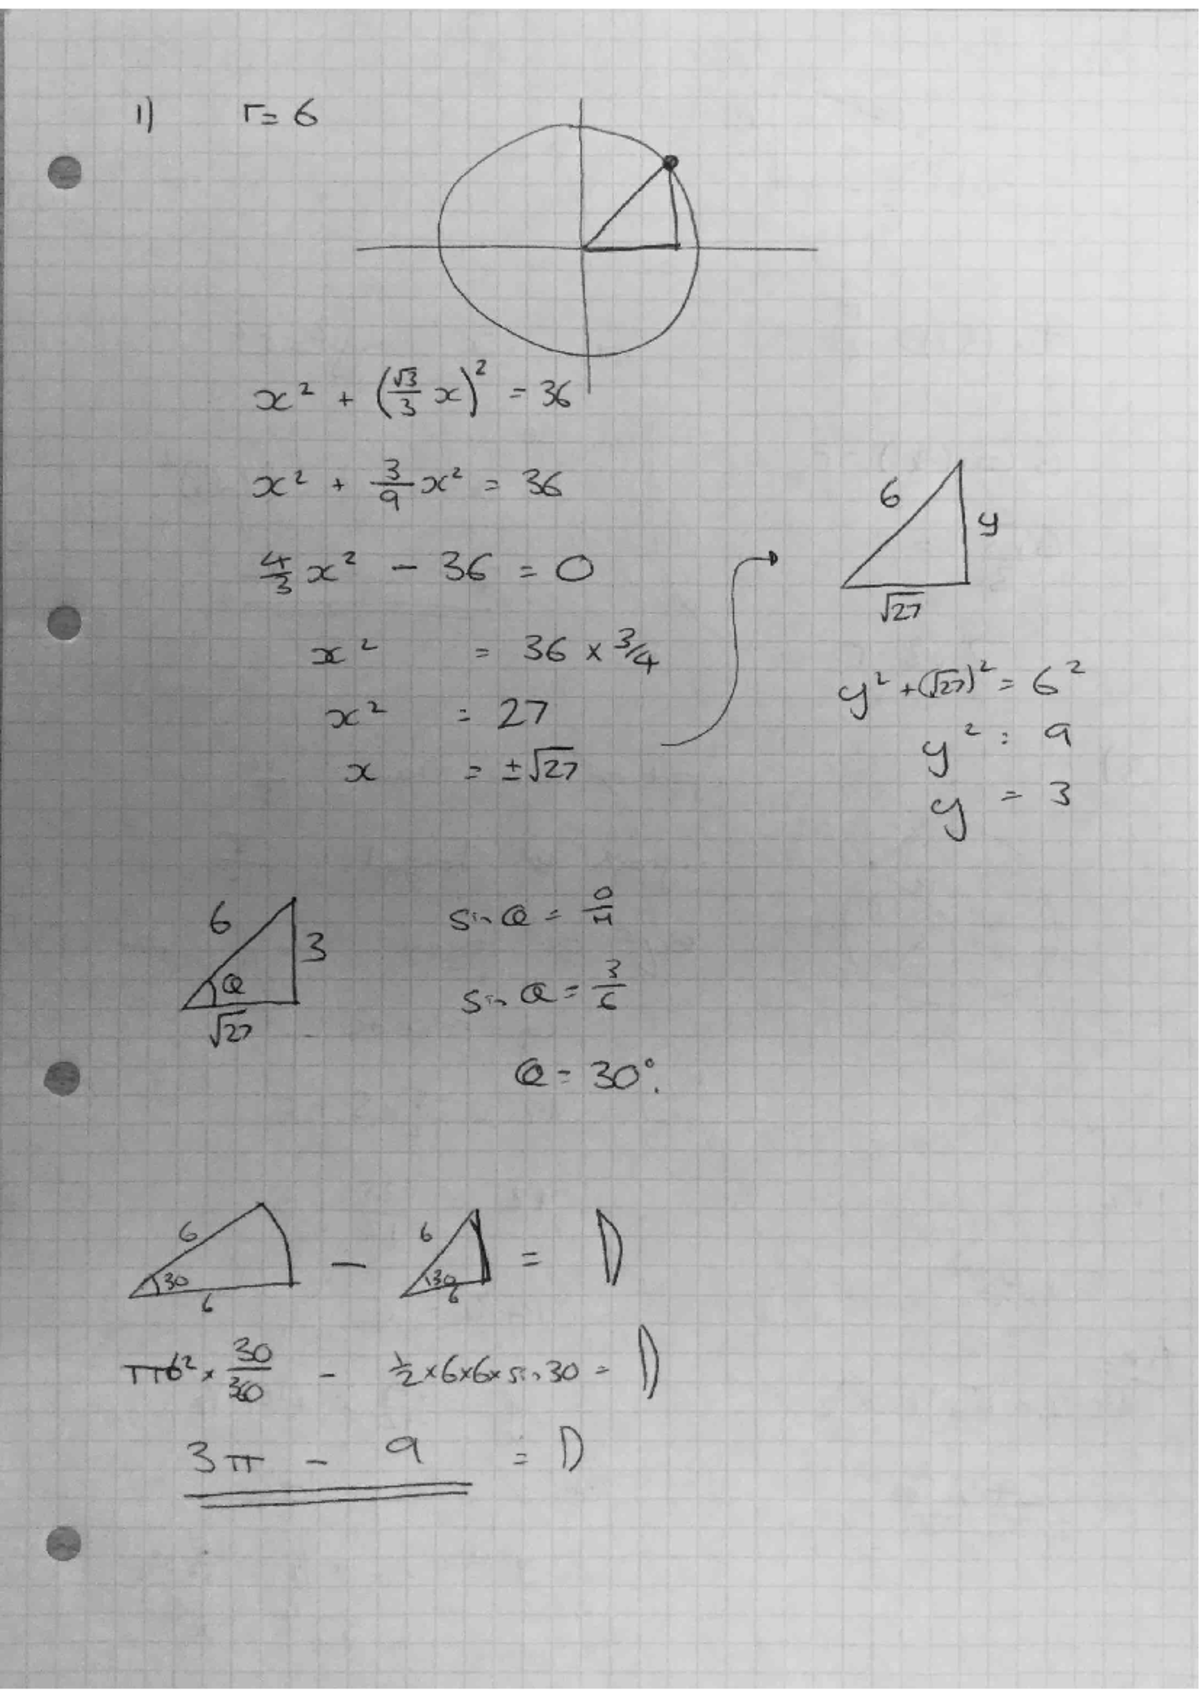 1) r = 6
x² + (√3/3 x)² = 36
x² + 3/9 x² = 36
4/3 x² - 36 = 0
x² = 36 × 3/4
x² = 27
x = ±√27
6
y
√27
y² + (√27)² = 6²
y² = 9
y = 3
6
3
Θ
√27
sin Θ = O/H
sin Θ = 3/6
Θ = 30°.
6
30
6
-
6
30
6
=
π6² × 30/360 - 1/2 × 6 × 6 × sin 30 =
3π - 9 =